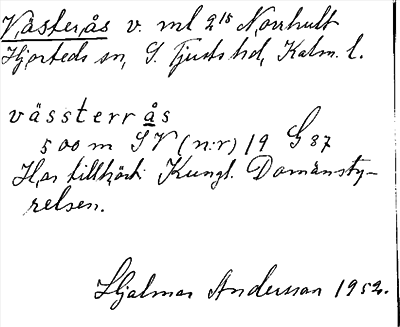 Västerås v. ml 2¹⁵ Norrhult
Hjorteds sn, S. Tjusts hd, Kalm. l.
vässterrås
500 m SV (n:r) 19 G 87
Har tillhört Kungl. Domänsty-
relsen.
Hjalmar Andersson 1952.